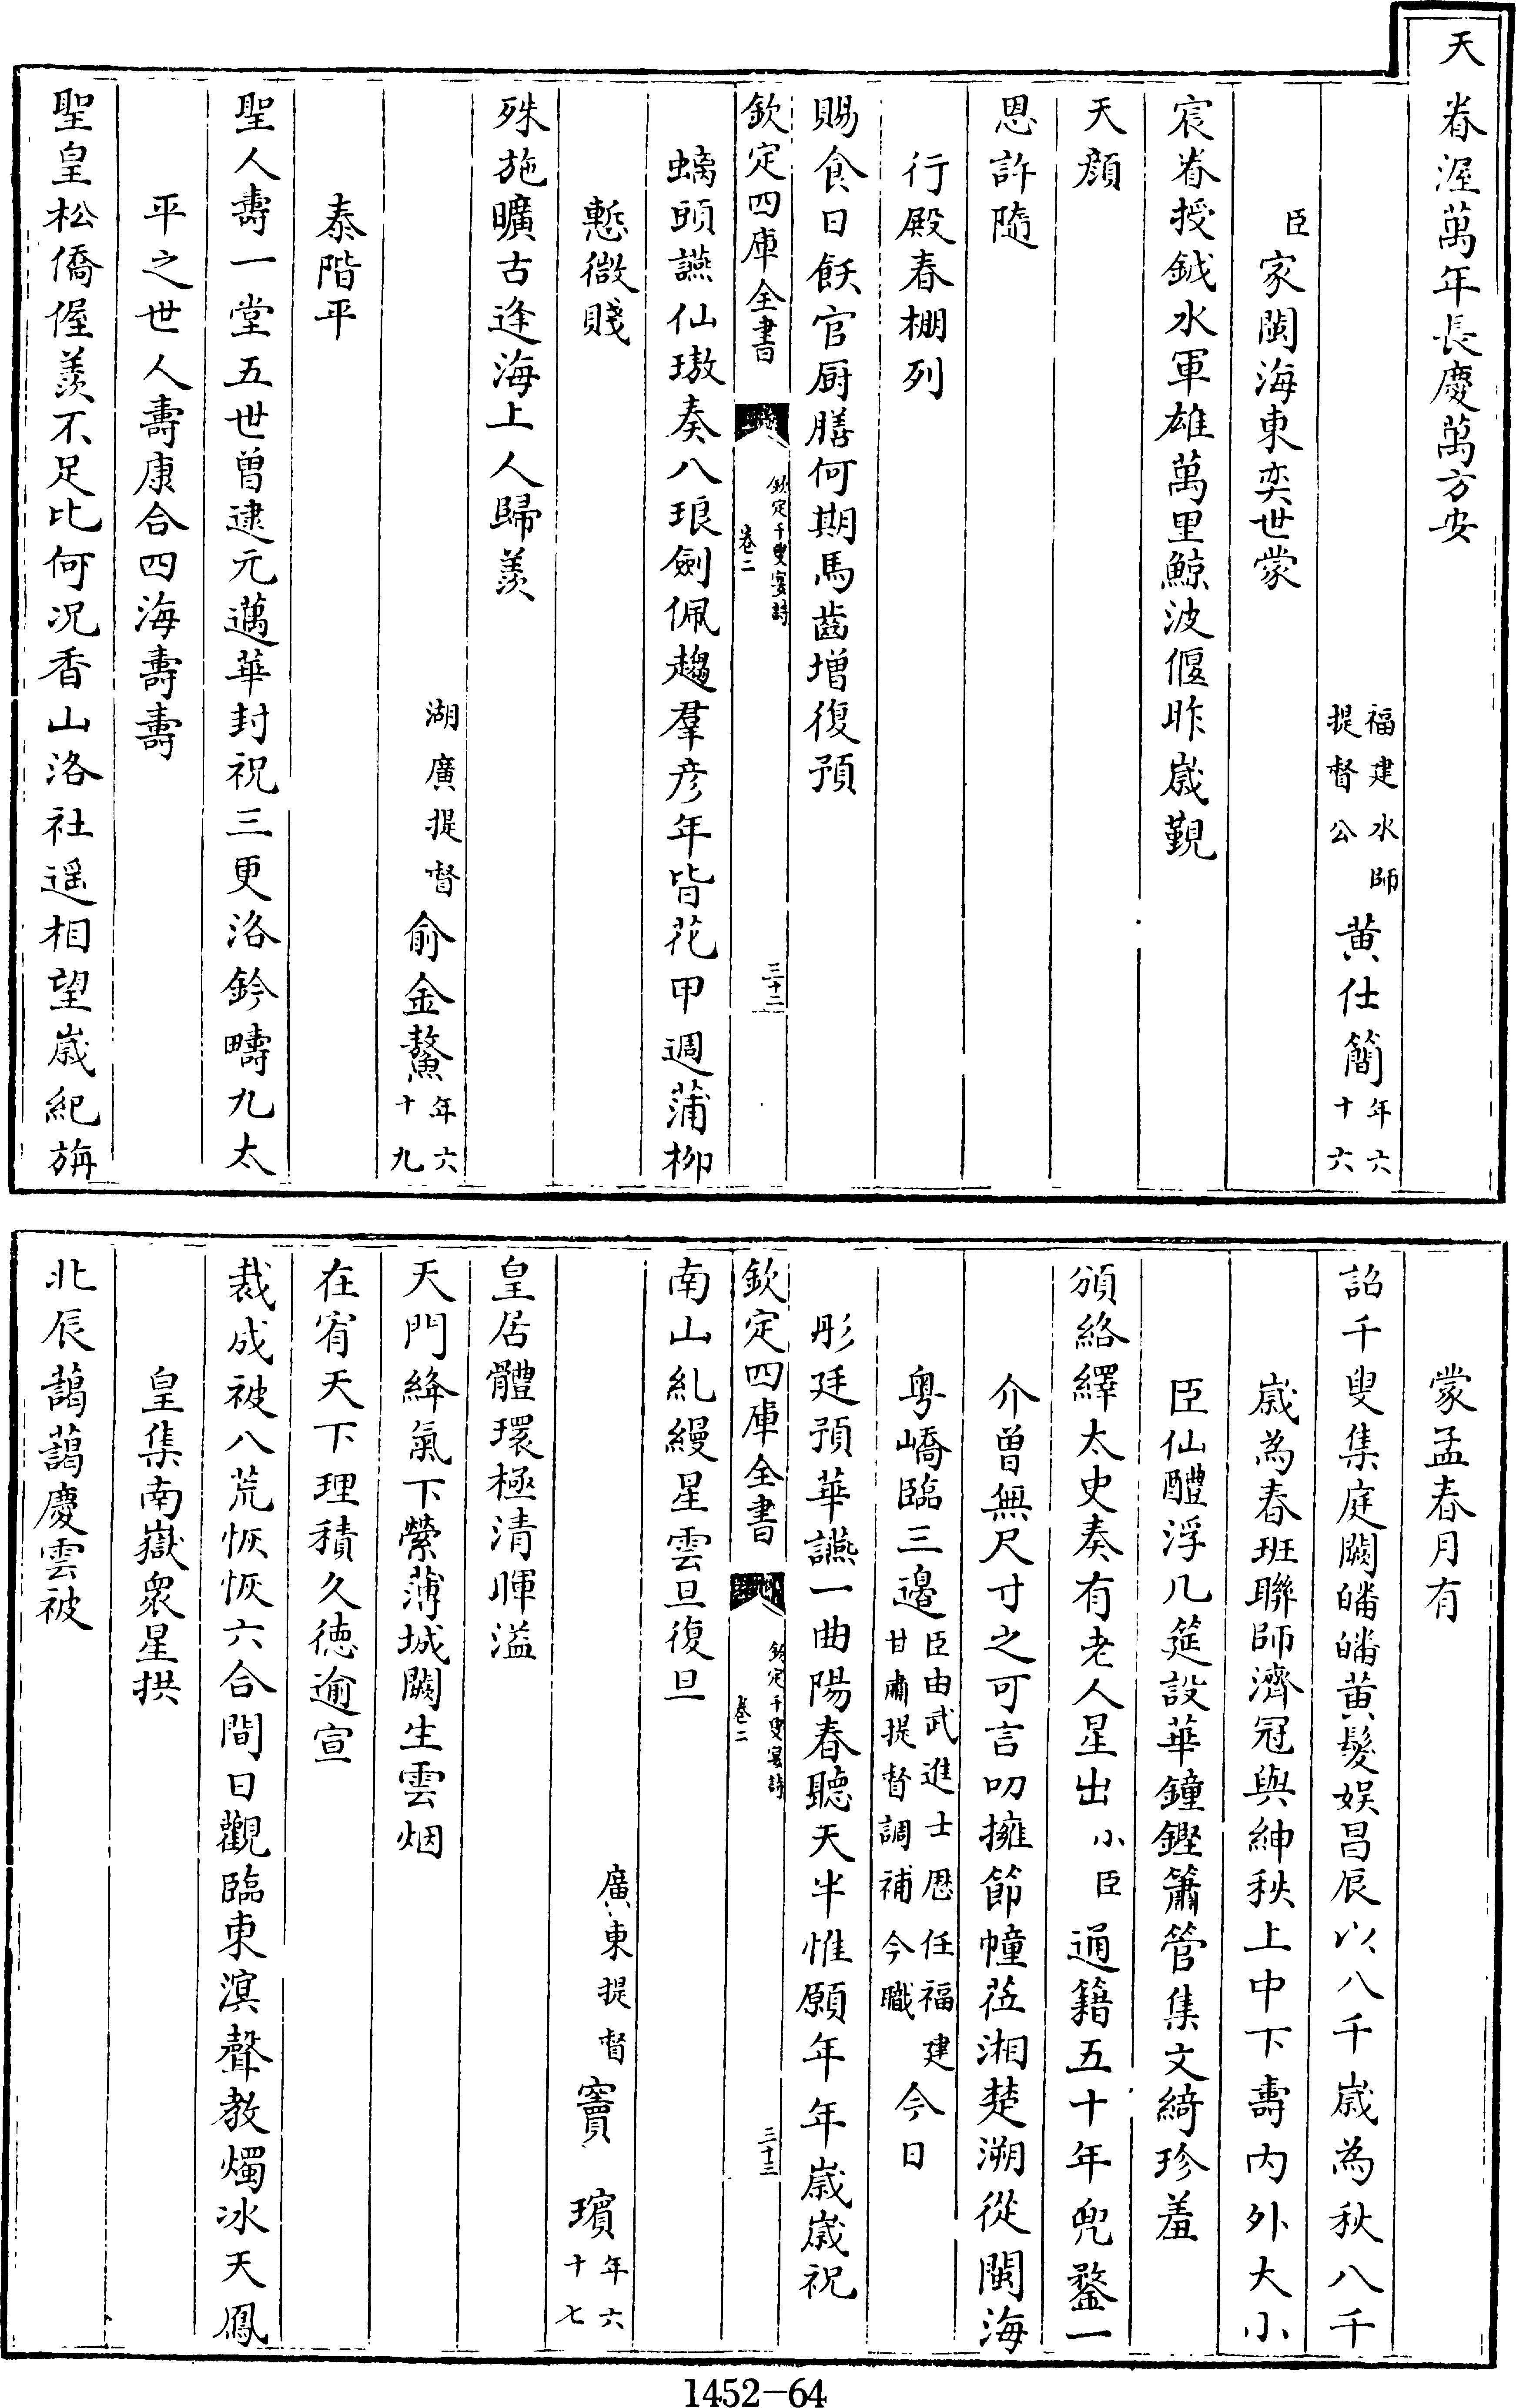 天眷渥萬年長慶萬方安
福建水師提督公黄仕簡年六十六
臣家閩海東奕世蒙
宸眷授鉞水軍雄萬里鯨波偃昨嵗覲
天顔
恩許隨
行殿春棚列
賜食日飫官厨膳何期馬齒增復預
欽定四庫全書
欽定千叟宴詩
卷二
三十二
螭頭讌仙璈奏八琅劍佩趨羣彦年皆花甲週蒲柳
慙微賤
殊施曠古逢海上人歸羨
泰階平
湖廣提督俞金鰲年六十九
聖人壽一堂五世曽逮元邁華封祝三更洛鈐疇九太
平之世人壽康合四海壽壽
聖皇松僑偓羨不足比何况香山洛社遥相望嵗紀旃
蒙孟春月有
詔千叟集庭闕皤皤黄髮娱昌辰以八千嵗為秋八千
嵗為春班聯師濟冠與紳秩上中下壽内外大小
臣仙醴浮几筵設華鐘鏗簫管集文綺珍羞
頒絡繹太史奏有老人星出小臣通籍五十年兜鍪一
介曽無尺寸之可言叨擁節幢莅湘楚溯從閩海
粤嶠臨三邉臣由武進士歴任福建甘肅提督調補今職今日
彤廷預華讌一曲陽春聽天半惟願年年嵗嵗祝
欽定四庫全書
欽定千叟宴詩
卷二
三十三
南山糺縵星雲旦復旦
廣東提督竇璸年六十七
皇居體環極清暉溢
天門絳氣下縈薄城闕生雲烟
在宥天下理積久徳逾宣
裁成被八荒恢恢六合間日觀臨東溟聲教燭冰天鳯
皇集南嶽衆星拱
北辰藹藹慶雲被
1452-64